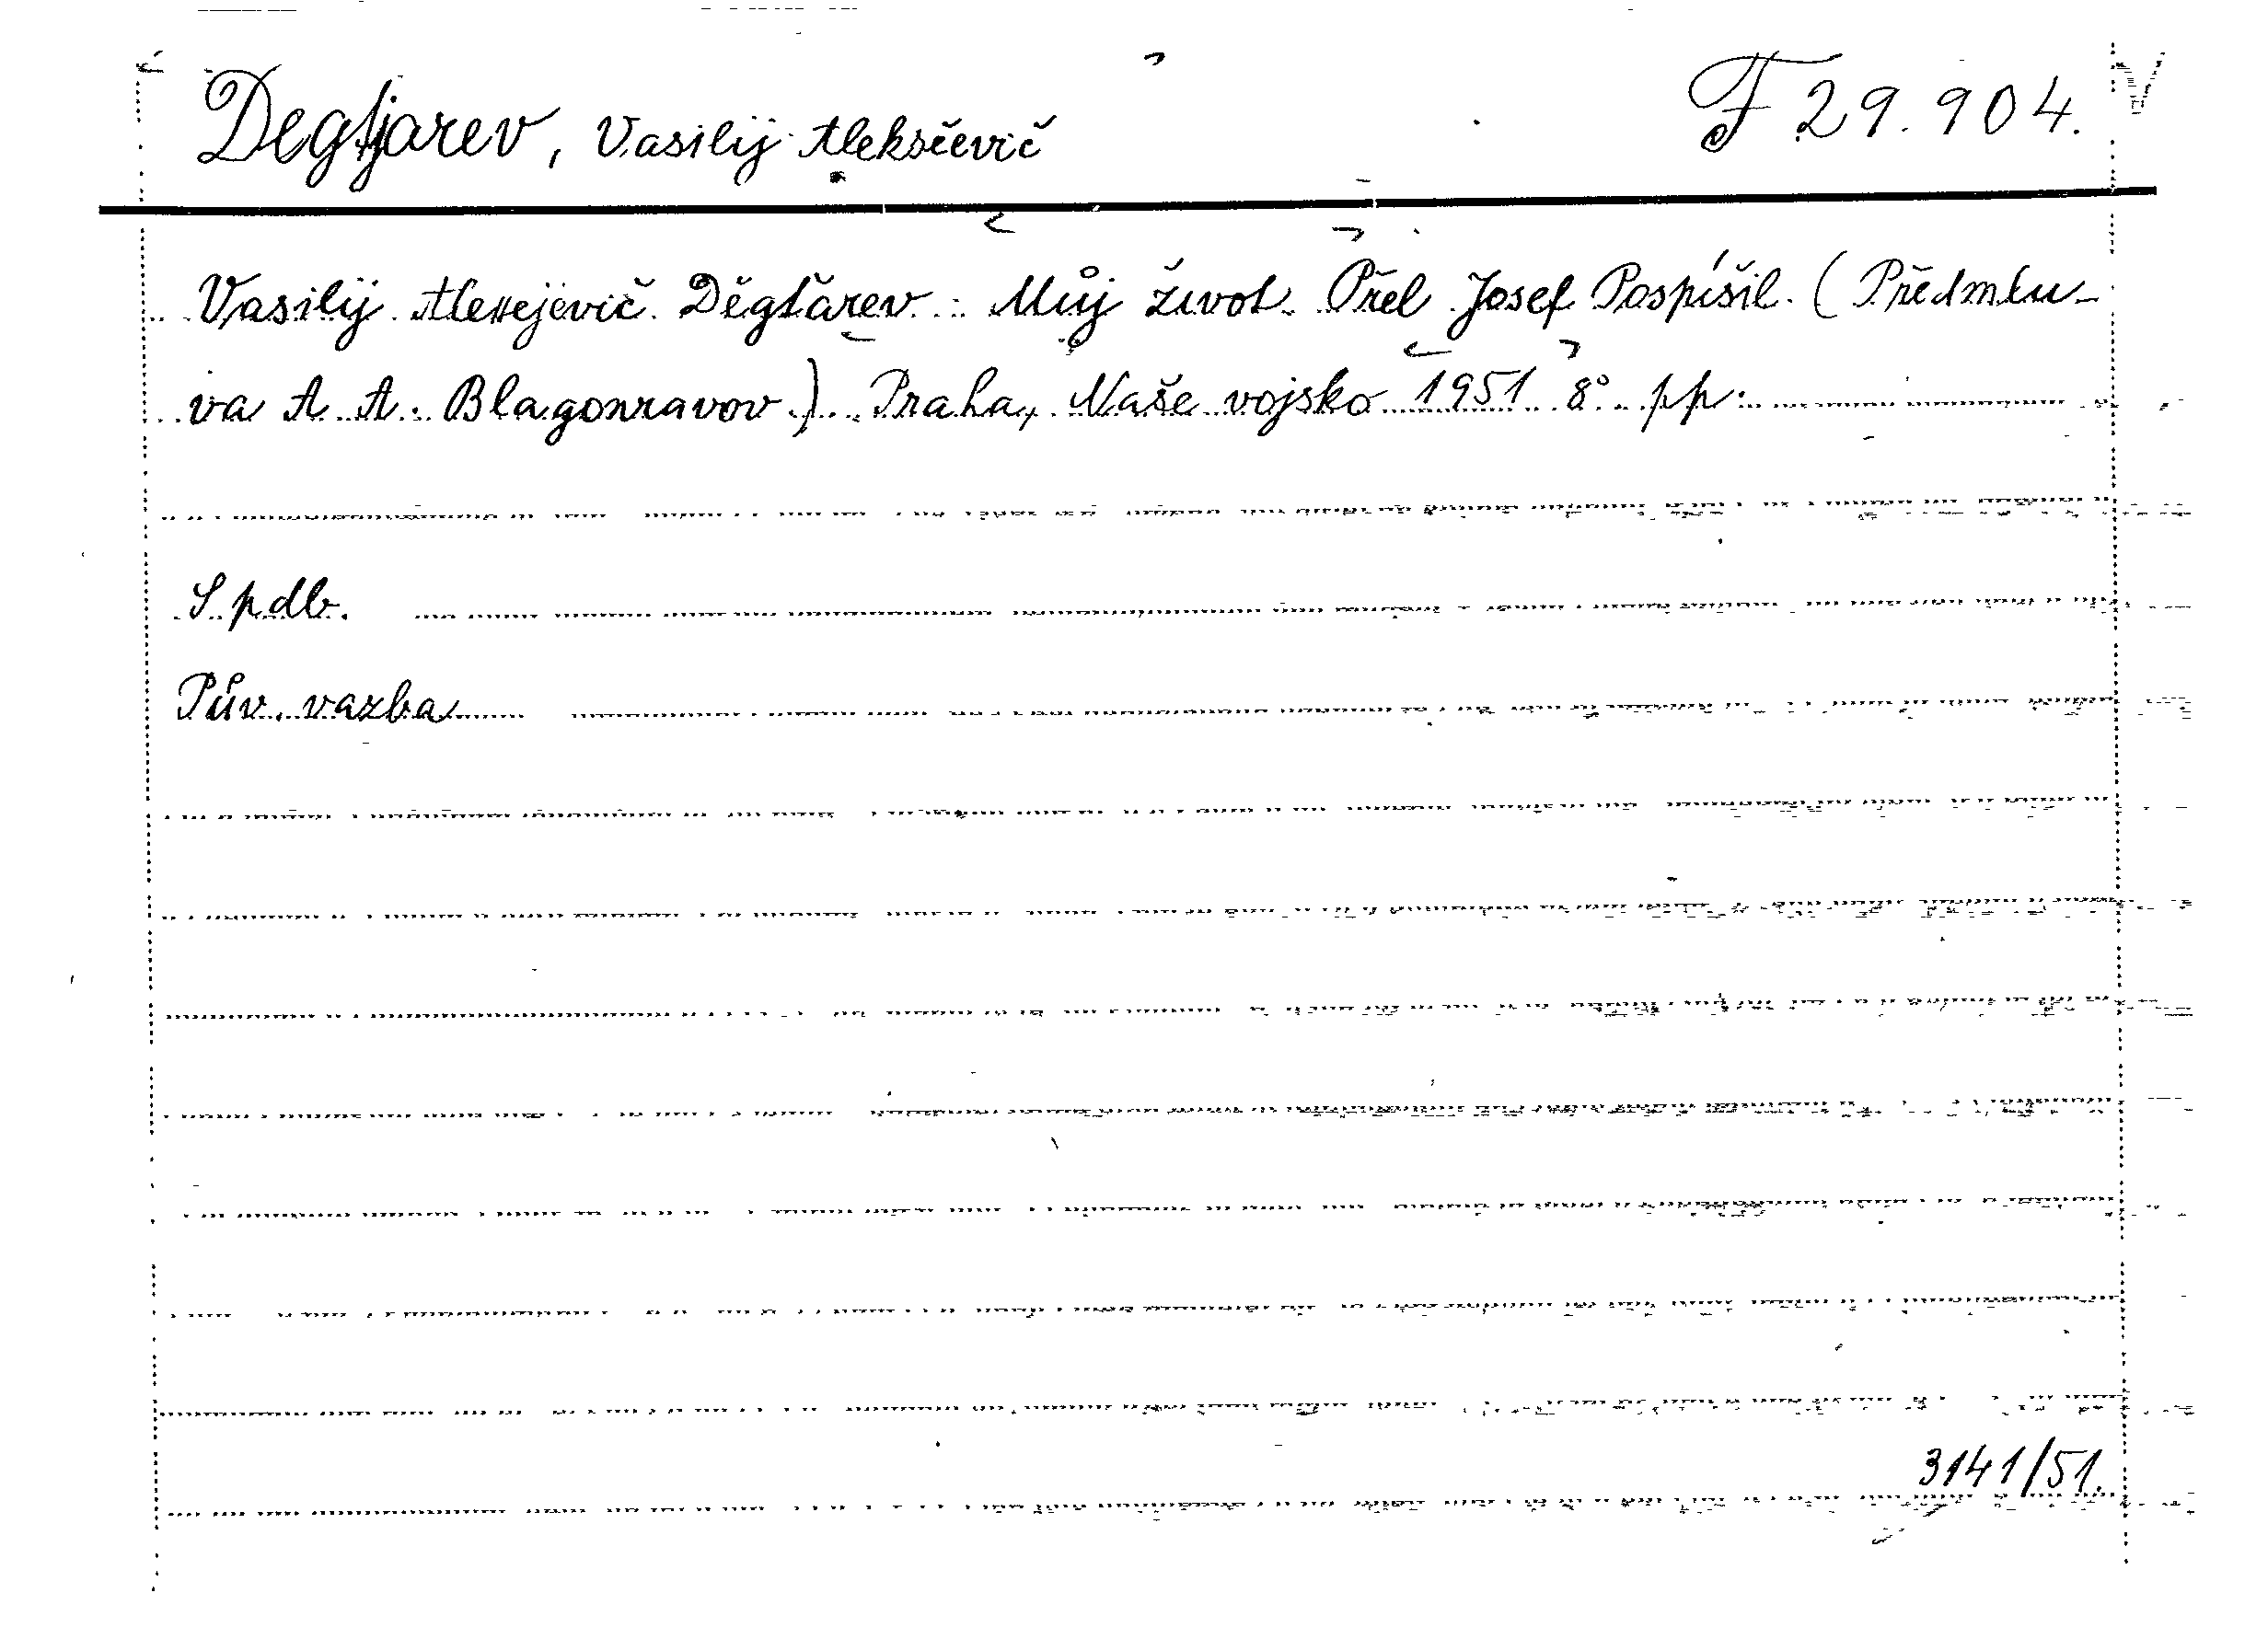 Degtjarev, Vasilij Aleksěevič F 29.904.
Vasilij Alexejevič Děgťarev: Můj život. Přel. Josef Pospíšil. (Předmlu-
va A. A. Blagonravov.) Praha, Naše vojsko 1951. 8° pp.
S pdb.
Pův. vazba
3141/51.